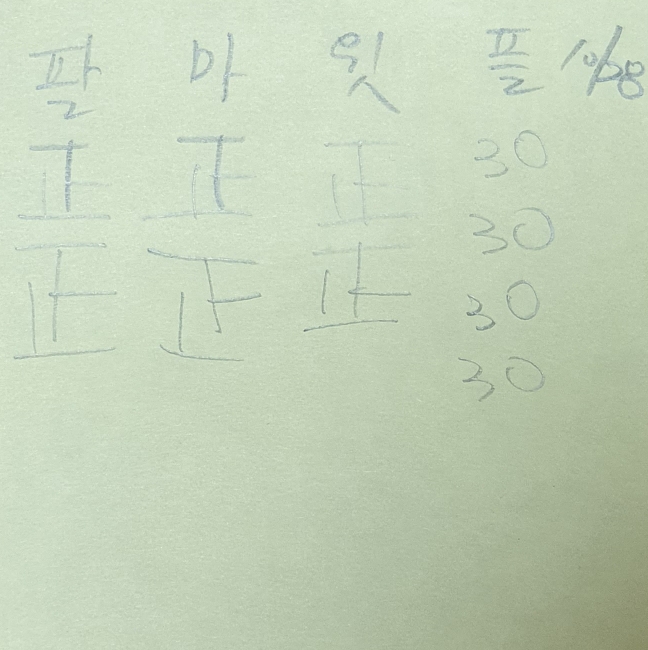 팔 마 윗 플 10/28
正 正 正 30
正 正 正 30
30
30